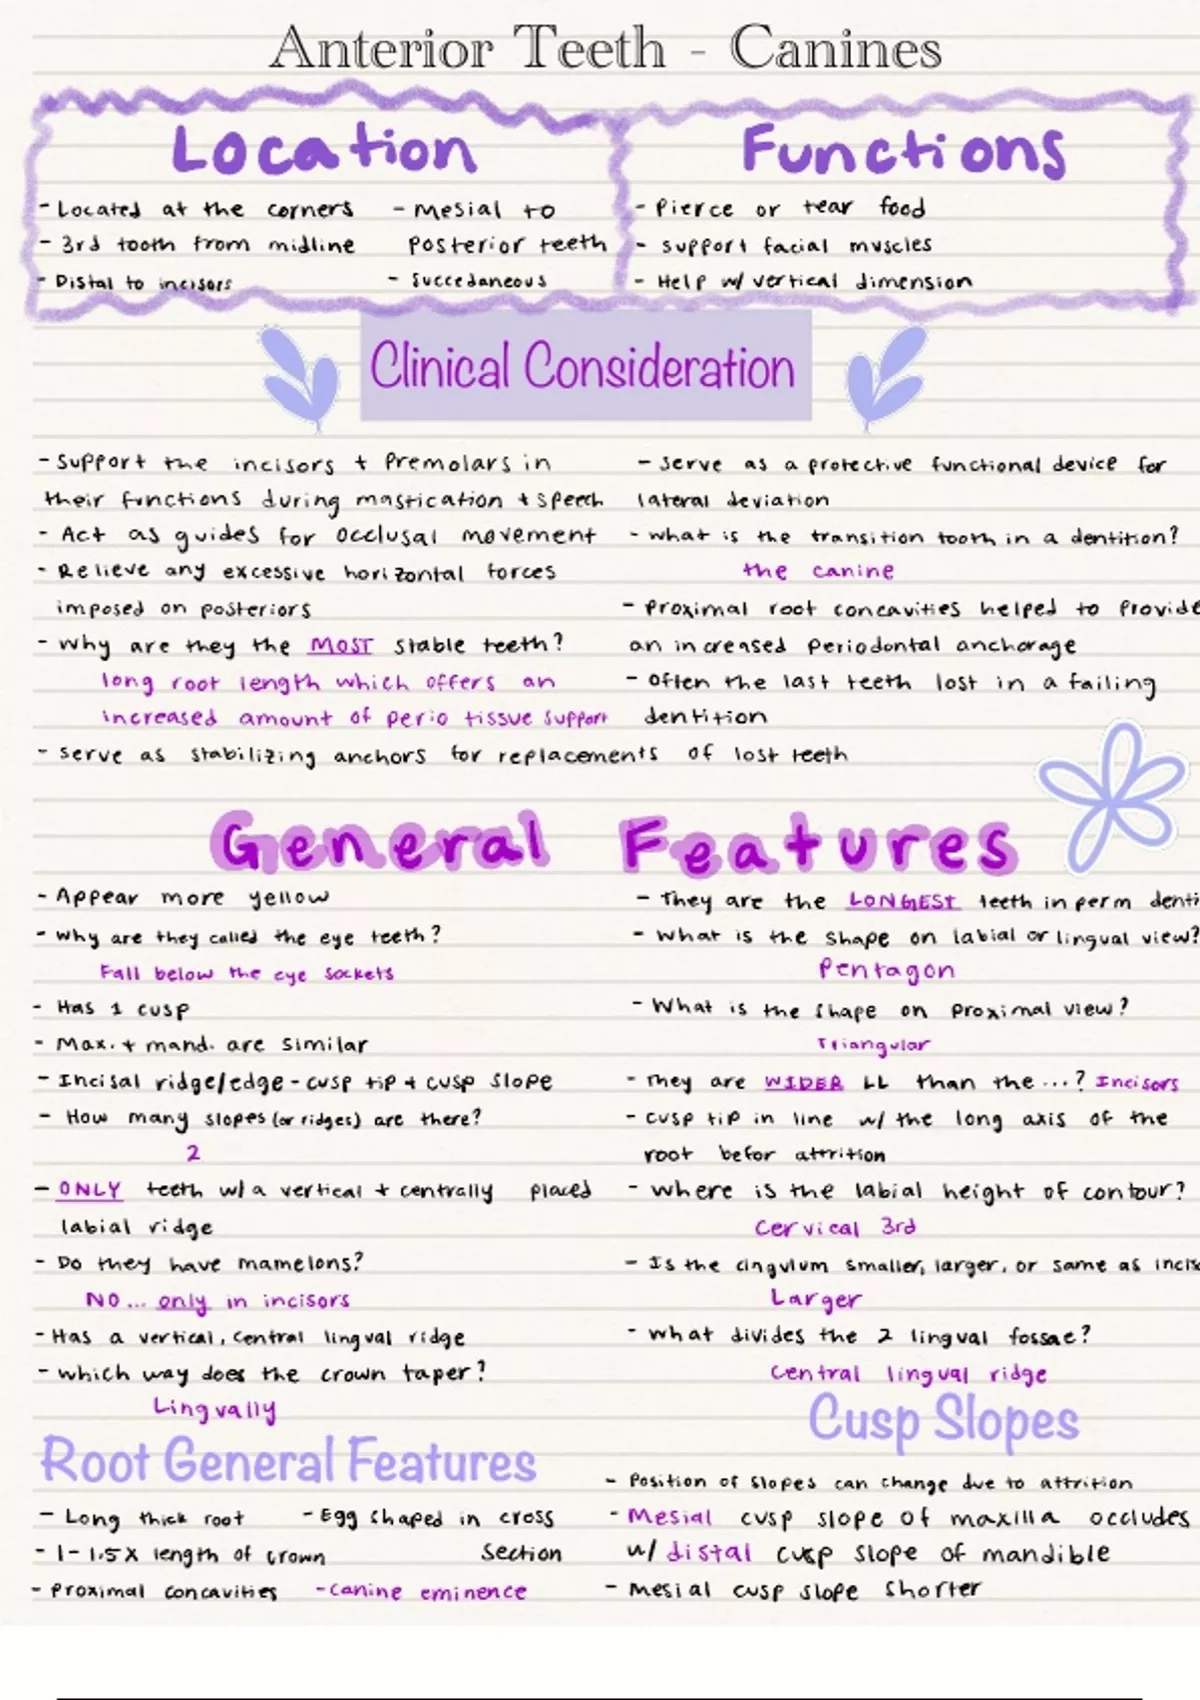 Anterior Teeth - Canines
Location
- Located at the corners
- 3rd tooth from midline
- Distal to incisors
- Mesial to
posterior teeth
- Succedaneous
Functions
- Pierce or tear food
- Support facial muscles
- Help w/ vertical dimension
Clinical Consideration
- Support the incisors + Premolars in
their functions during mastication + speech
- Act as guides for occlusal movement
- Relieve any excessive horizontal forces
imposed on posteriors
- Why are they the MOST stable teeth?
long root length which offers an
increased amount of perio tissue support
- serve as stabilizing anchors for replacements of lost teeth
- serve as a protective functional device for
lateral deviation
- what is the transition tooth in a dentition?
the canine
- Proximal root concavities helped to provide
an increased periodontal anchorage
- Often the last teeth lost in a failing
dentition
General Features
- Appear more yellow
- Why are they called the eye teeth?
Fall below the eye sockets
- Has 1 cusp
- Max. + mand. are similar
- Incisal ridge/edge - cusp tip + cusp slope
- How many slopes (or ridges) are there?
2
- ONLY teeth w/ a vertical + centrally placed
labial ridge
- Do they have mamelons?
NO... only in incisors
- Has a vertical, central lingual ridge
- which way does the crown taper?
Lingually
- They are the LONGEST teeth in perm denti
- What is the shape on labial or lingual view?
Pentagon
- What is the shape on proximal view?
Triangular
- They are WIDER LL than the ...? Incisors
- cusp tip in line w/ the long axis of the
root befor attrition
- Where is the labial height of contour?
Cervical 3rd
- Is the cingulum smaller, larger, or same as incis
Larger
- What divides the 2 lingual fossae?
Central lingual ridge
Root General Features
- Long thick root
- 1-1.5X length of crown
- Proximal concavities
- Egg shaped in cross
section
- Canine eminence
Cusp Slopes
- Position of slopes can change due to attrition
- Mesial cusp slope of maxilla occludes
w/ distal cusp slope of mandible
- Mesial cusp slope shorter